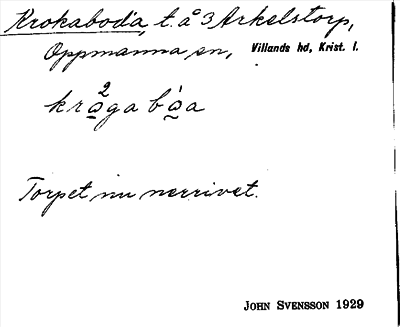 Krokaboda, t. å 3 Arkelstorp,
Oppmanna sn, Villands hd, Krist. l.
krå²ga bå̀a
Torpet nu nerrivet.
JOHN SVENSSON 1929